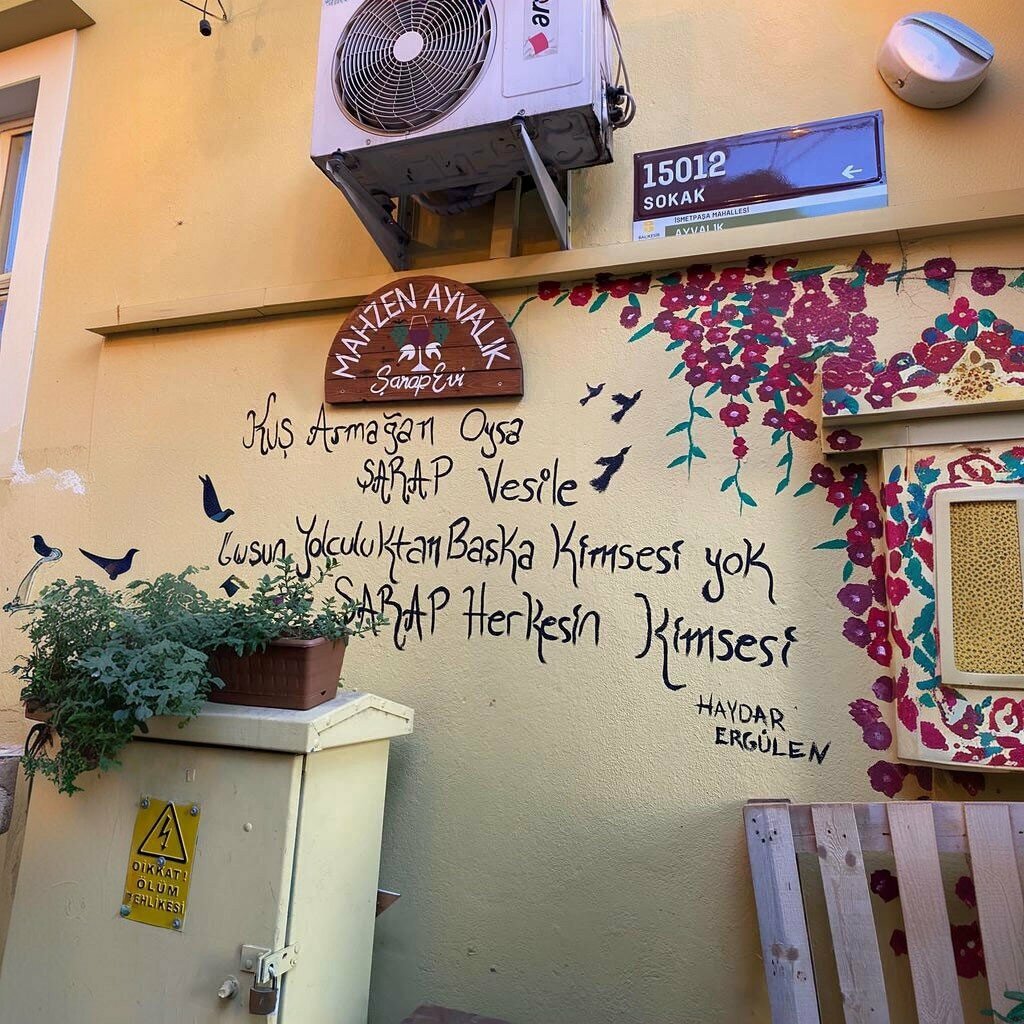 15012
SOKAK
İSMETPAŞA MAHALLESİ
AYVALIK
MAHZEN AYVALIK
Şarap Evi
Kuş Armağan Oysa
ŞARAP Vesile
Yolculuktan Başka Kimsesi yok
ŞARAP Herkesin Kimsesi
HAYDAR
ERGÜLEN
DİKKAT!
ÖLÜM
TEHLİKESİ